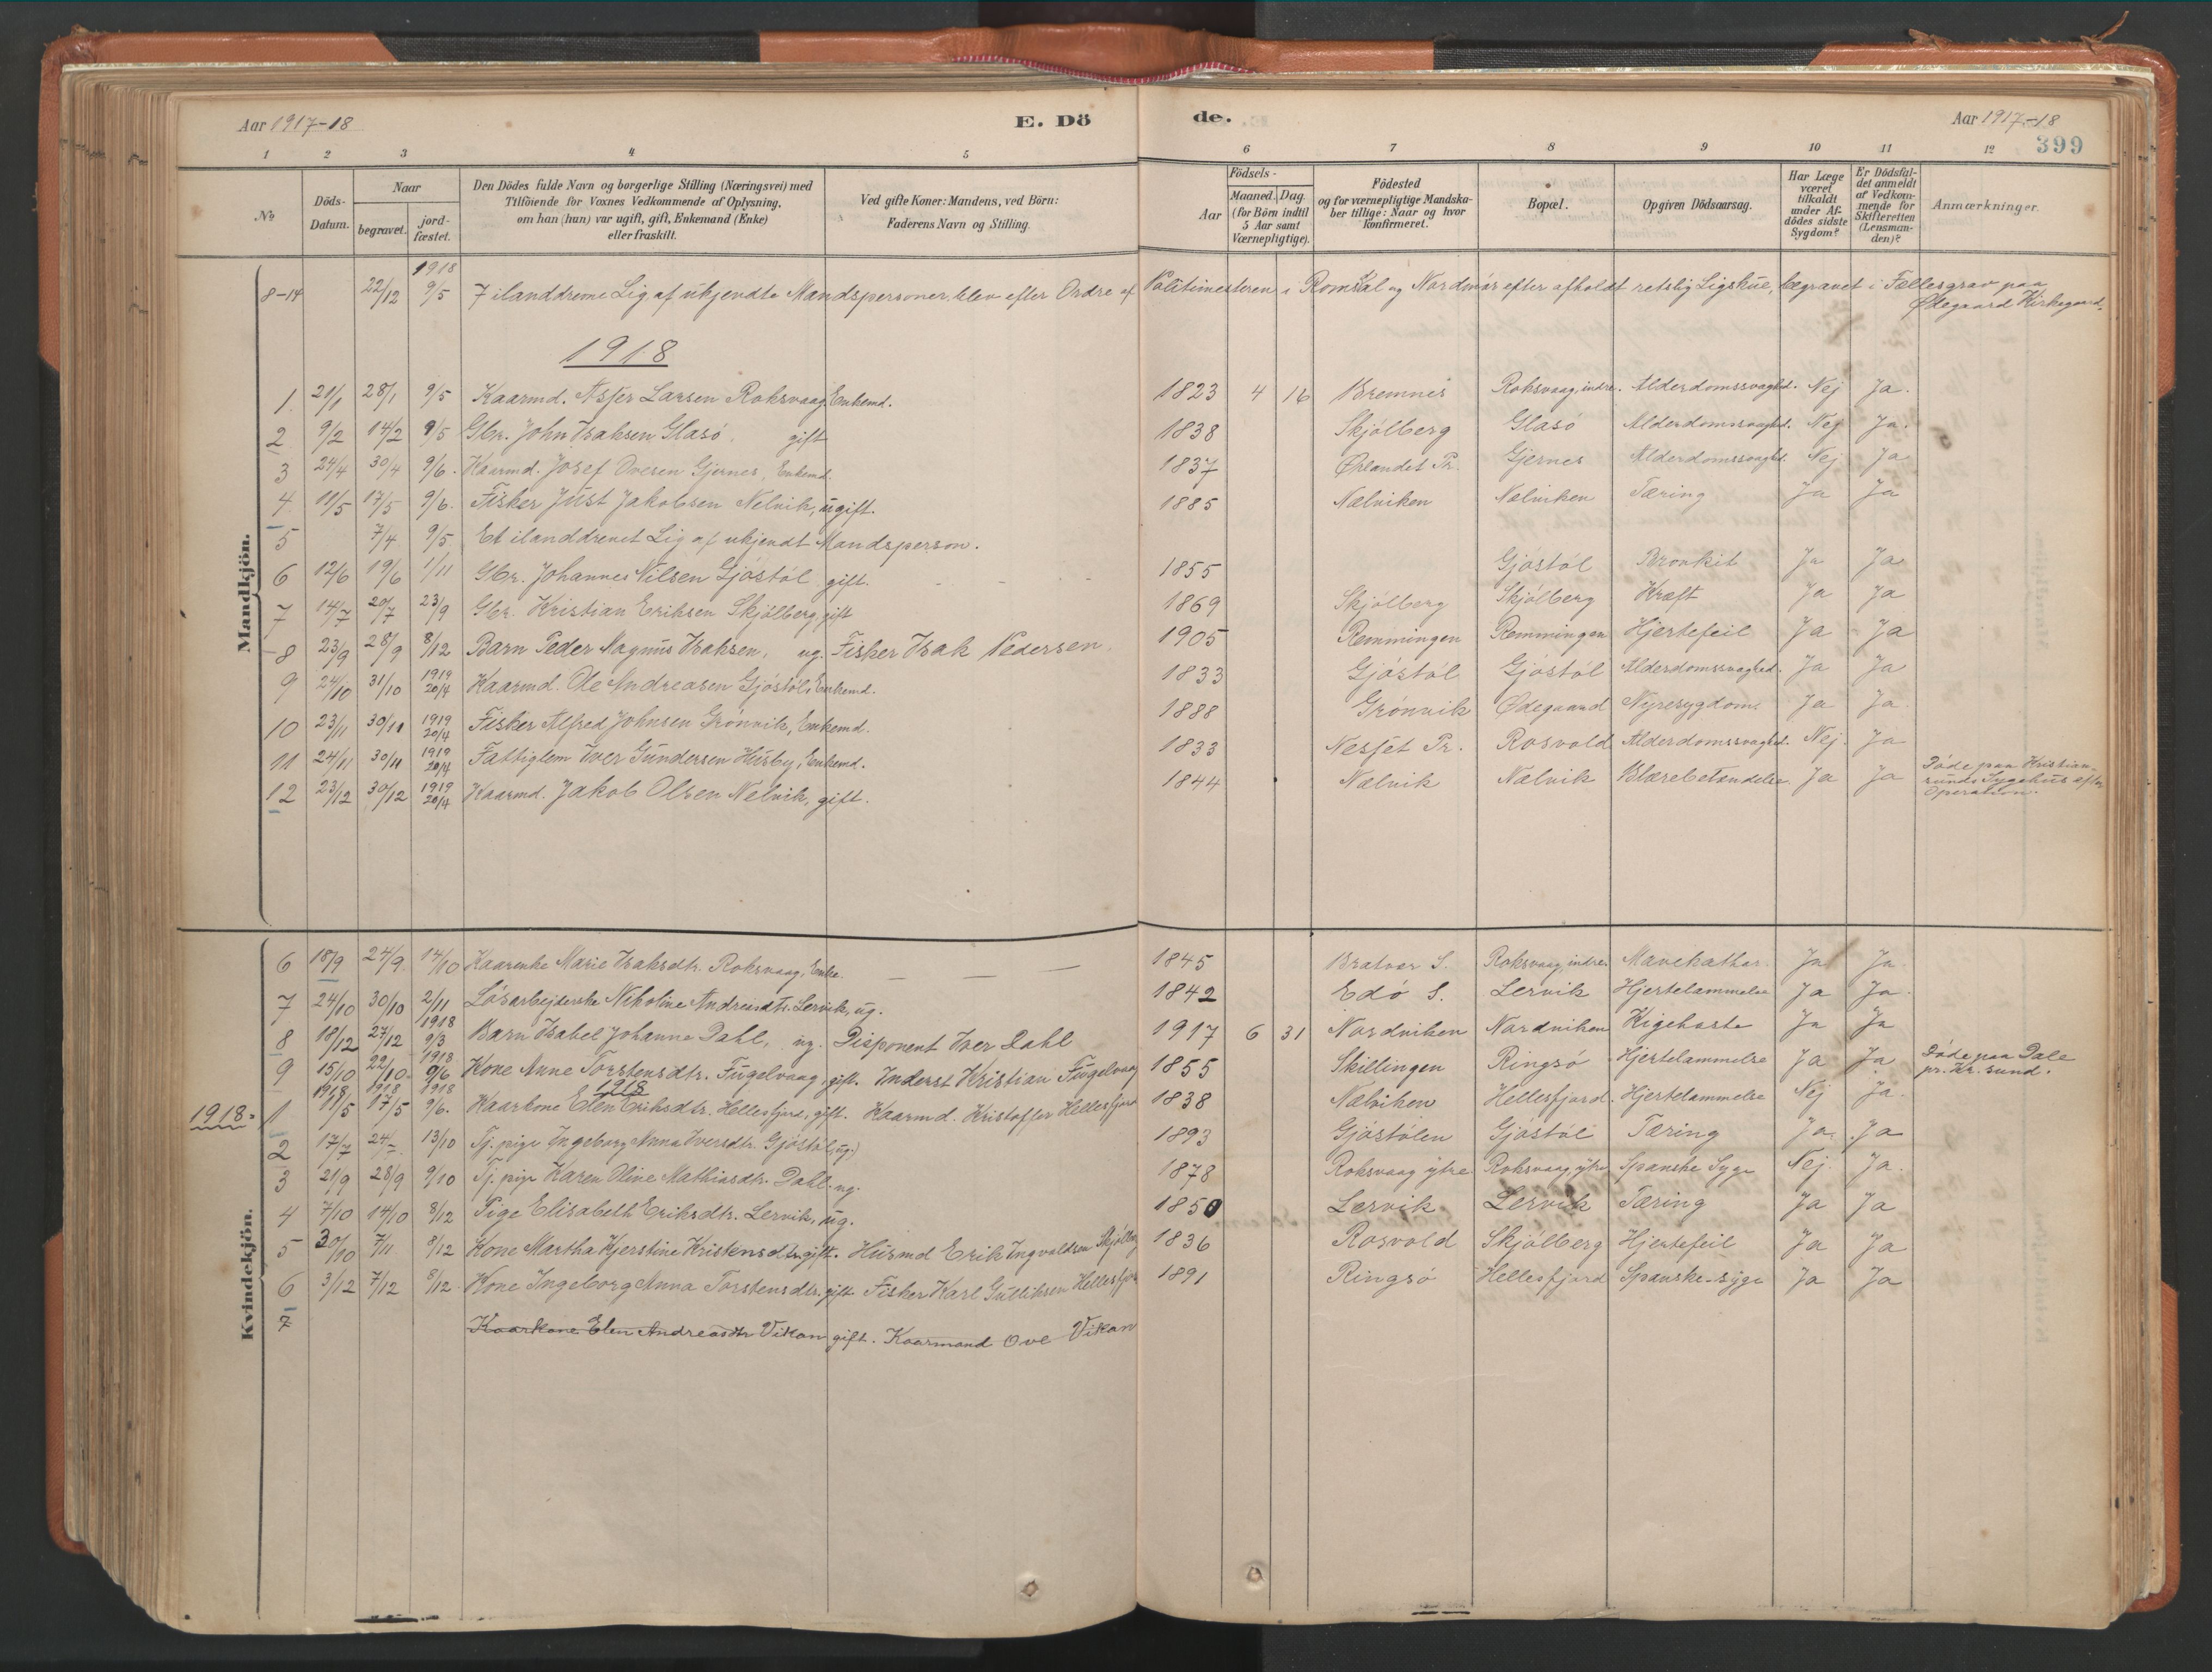 Aar 1917-18 E. Dö de. Aar 1917-18
399
1 2 3 4 5 6 7 8 9 10 11 12
No
Döds-Datum.
Naar begravet. jordfæstet.
Den Dödes fulde Navn og borgerlige Stilling (Næringsvei) med Tilföiende for Voxnes Vedkommende af Oplysning, om han (hun) var ugift, gift, Enkemand (Enke) eller fraskilt.
Ved gifte Koner: Mandens, ved Börn: Faderens Navn og Stilling.
Aar
Födsels- Maaned. Dag. (for Börn indtil 5 Aar samt Værnepligtige).
Födested og for værnepligtige Mandskaber tillige: Naar og hvor konfirmeret.
Bopæl.
Opgiven Dödsaarsag.
Har Læge været tilkaldt under Afdödes sidste Sygdom?
Er Dödsfaldet anmeldt af Vedkommende for Skifteretten (Lensmanden)?
Anmærkninger.
Mandkjön.
8-14 22/12 1918 9/5 7 ilanddrevne Lig af ukjendte Mandspersoner, blev efter Ordre af Politimesteren i Romsdal og Nordmør efter afholdt retslig Ligskue, begravet i Fællesgrav paa
Ødegaard Kirkegaard.
1918
1. 21/1 28/1 9/5 Kaarmd. Asser Larsen Roksvaag, Enkemd. 1823 4 16 Bremnes Roksvaag, indre. Alderdomssvaghed. Nej Ja.
2 9/2 14/2 9/5 Gbr. John Isaksen Glasö, gift 1838 Skjölberg Glasö Alderdomssvaghed. Nej Ja.
3 24/4 30/4 9/6. Kaarmd. Josef Ovesen Gjernes, Enkemd. 1837 Ørlandet Pr. Gjernes Alderdomssvaghd. Nej Ja
4 11/5 17/5 9/6. Fisker Just Jakobsen Nelvik, ugift. 1885 Nælviken Nælviken Tæring Ja Ja
5 7/4 9/5 Et ilanddrevet Lig af ukjendt Mandsperson.
6 12/6 19/6 1/11 Gbr. Johannes Nilsen Gjöstöl, gift. 1855 Gjöstöl Bronkit Ja Ja
7 14/7 20/7 23/9 Gbr. Kristian Eriksen Skjölberg, gift 1869 Skjölberg Skjölberg Kræft Ja Ja
8 23/9 28/9 8/12 Barn Peder Magnus Isaksen, ug. Fisker Isak Pedersen. 1905 Remmingen Remmingen Hjertefeil Ja Ja
9 24/10 31/10 1919 20/4 Kaarmd. Ole Andreasen Gjöstöl, Enkemd. 1833 Gjöstöl Gjöstöl Alderdomssvaghed. Ja Ja
10 23/11 30/11 1919 20/4 Fisker Alfred Johnsen Grönvik, Enkemd. 1888 Grönvik Ødegaard Nyresygdom. Ja Ja.
11 24/11 30/11 1919 20/4 Fattiglem Iver Gundersen Husby, Enkemd. 1833 Nesset Pr. Rosvold Alderdomssvaghed. Nej. Ja
12 23/12 30/12 1919 20/4 Kaarmd. Jakob Olsen Nelvik, gift. 1844 Nælvik Nælvik Blærebetændelse Ja Ja Döde paa Kristiansunds Sygehus efter Operation.
Kvindekjön.
6 18/9 24/9 14/10 Kaarenke Marie Isaksdtr. Roksvaag, Enke. 1845 Bratvær S. Roksvaag, indre. Mavekathar. Ja Ja.
7 24/10 30/10 2/11 Lösarbejderske Nikoline Andreasdtr. Lervik, ug. 1842 Edö S. Lervik Hjertelammelse Ja Ja.
8 18/12 27/12 1918 9/3 Barn Isabel Johanna Dahl, ug. Disponent Iver Dahl 1917 6 31 Nordviken Nordviken Kigehoste Ja Ja
9 15/10 22/10 1918 9/6 Kone Anne Torstensdtr. Fugelvaag, gift. Inderst Kristian Fugelvaag 1855 Skillingen Ringsö Hjertelammelse Ja Ja Döde paa Dale pr. Kr. sund.
1918
1918= 1 1918 11/5 1918 17/5 1918 9/6. Kaarkone Elen Eriksdtr. Hellesfjord, gift. Kaarmd. Kristoffer Hellesfjord 1838 Nælviken Hellesfjord Hjertelammelse Nej Ja.
2 17/7 24/7 13/10 Tj. pige Ingeborg Anna Iversdtr. Gjöstöl (ug.) 1893 Gjöstölen Gjöstöl Tæring Ja Ja
3 21/9 28/9 9/10 Tj. pige Karen Oline Mathiasdtr. Dahl. ug. 1878 Roksvaag ytre Roksvaag, ytre Spanske Syge Nej Ja.
4 7/10 14/10 8/12 Pige Elisabeth Eriksdtr. Lervik, ug. 1850 Lervik Lervik Tæring Ja Ja
5 30/10 7/11 8/12 Kone Martha Kjerstine Kristensdtr. gift. Husmd Erik Ingvoldsen Skjölberg 1836 Rosvold Skjölberg Hjertefeil Ja Ja
6 3/12 7/12 8/12. Kone Ingeborg Anna Torstensdtr. gift. Fisker Karl Gulliksen Hellesfjord 1891 Ringsö Hellesfjord Spanske-syge Ja Ja
7 Kaarkone Elen Andreasdtr Vikan gift. Kaarmand Ove Vikan